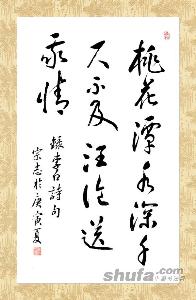 桃花潭水深千
尺不及汪伦送
我情
录李白詩句
宗志於庚寅夏
shufa.com